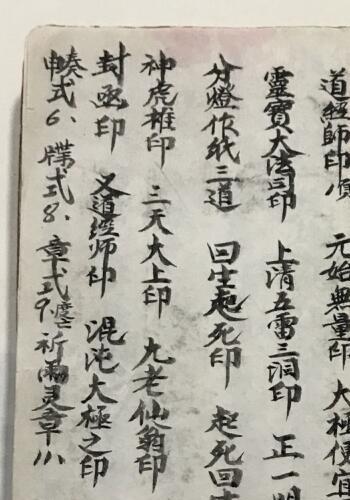 道經師印 元始無量印 大極便宜
靈寶大法司印 上清五雷三洞印 正一
分燈作紙三道 回生起死印 起死回
神虎摧印 三天大上印 九老仙翁印
封函印 又道經师印 混沌大極之印
申奏式6、牒式8、章式9 祈雨灵章